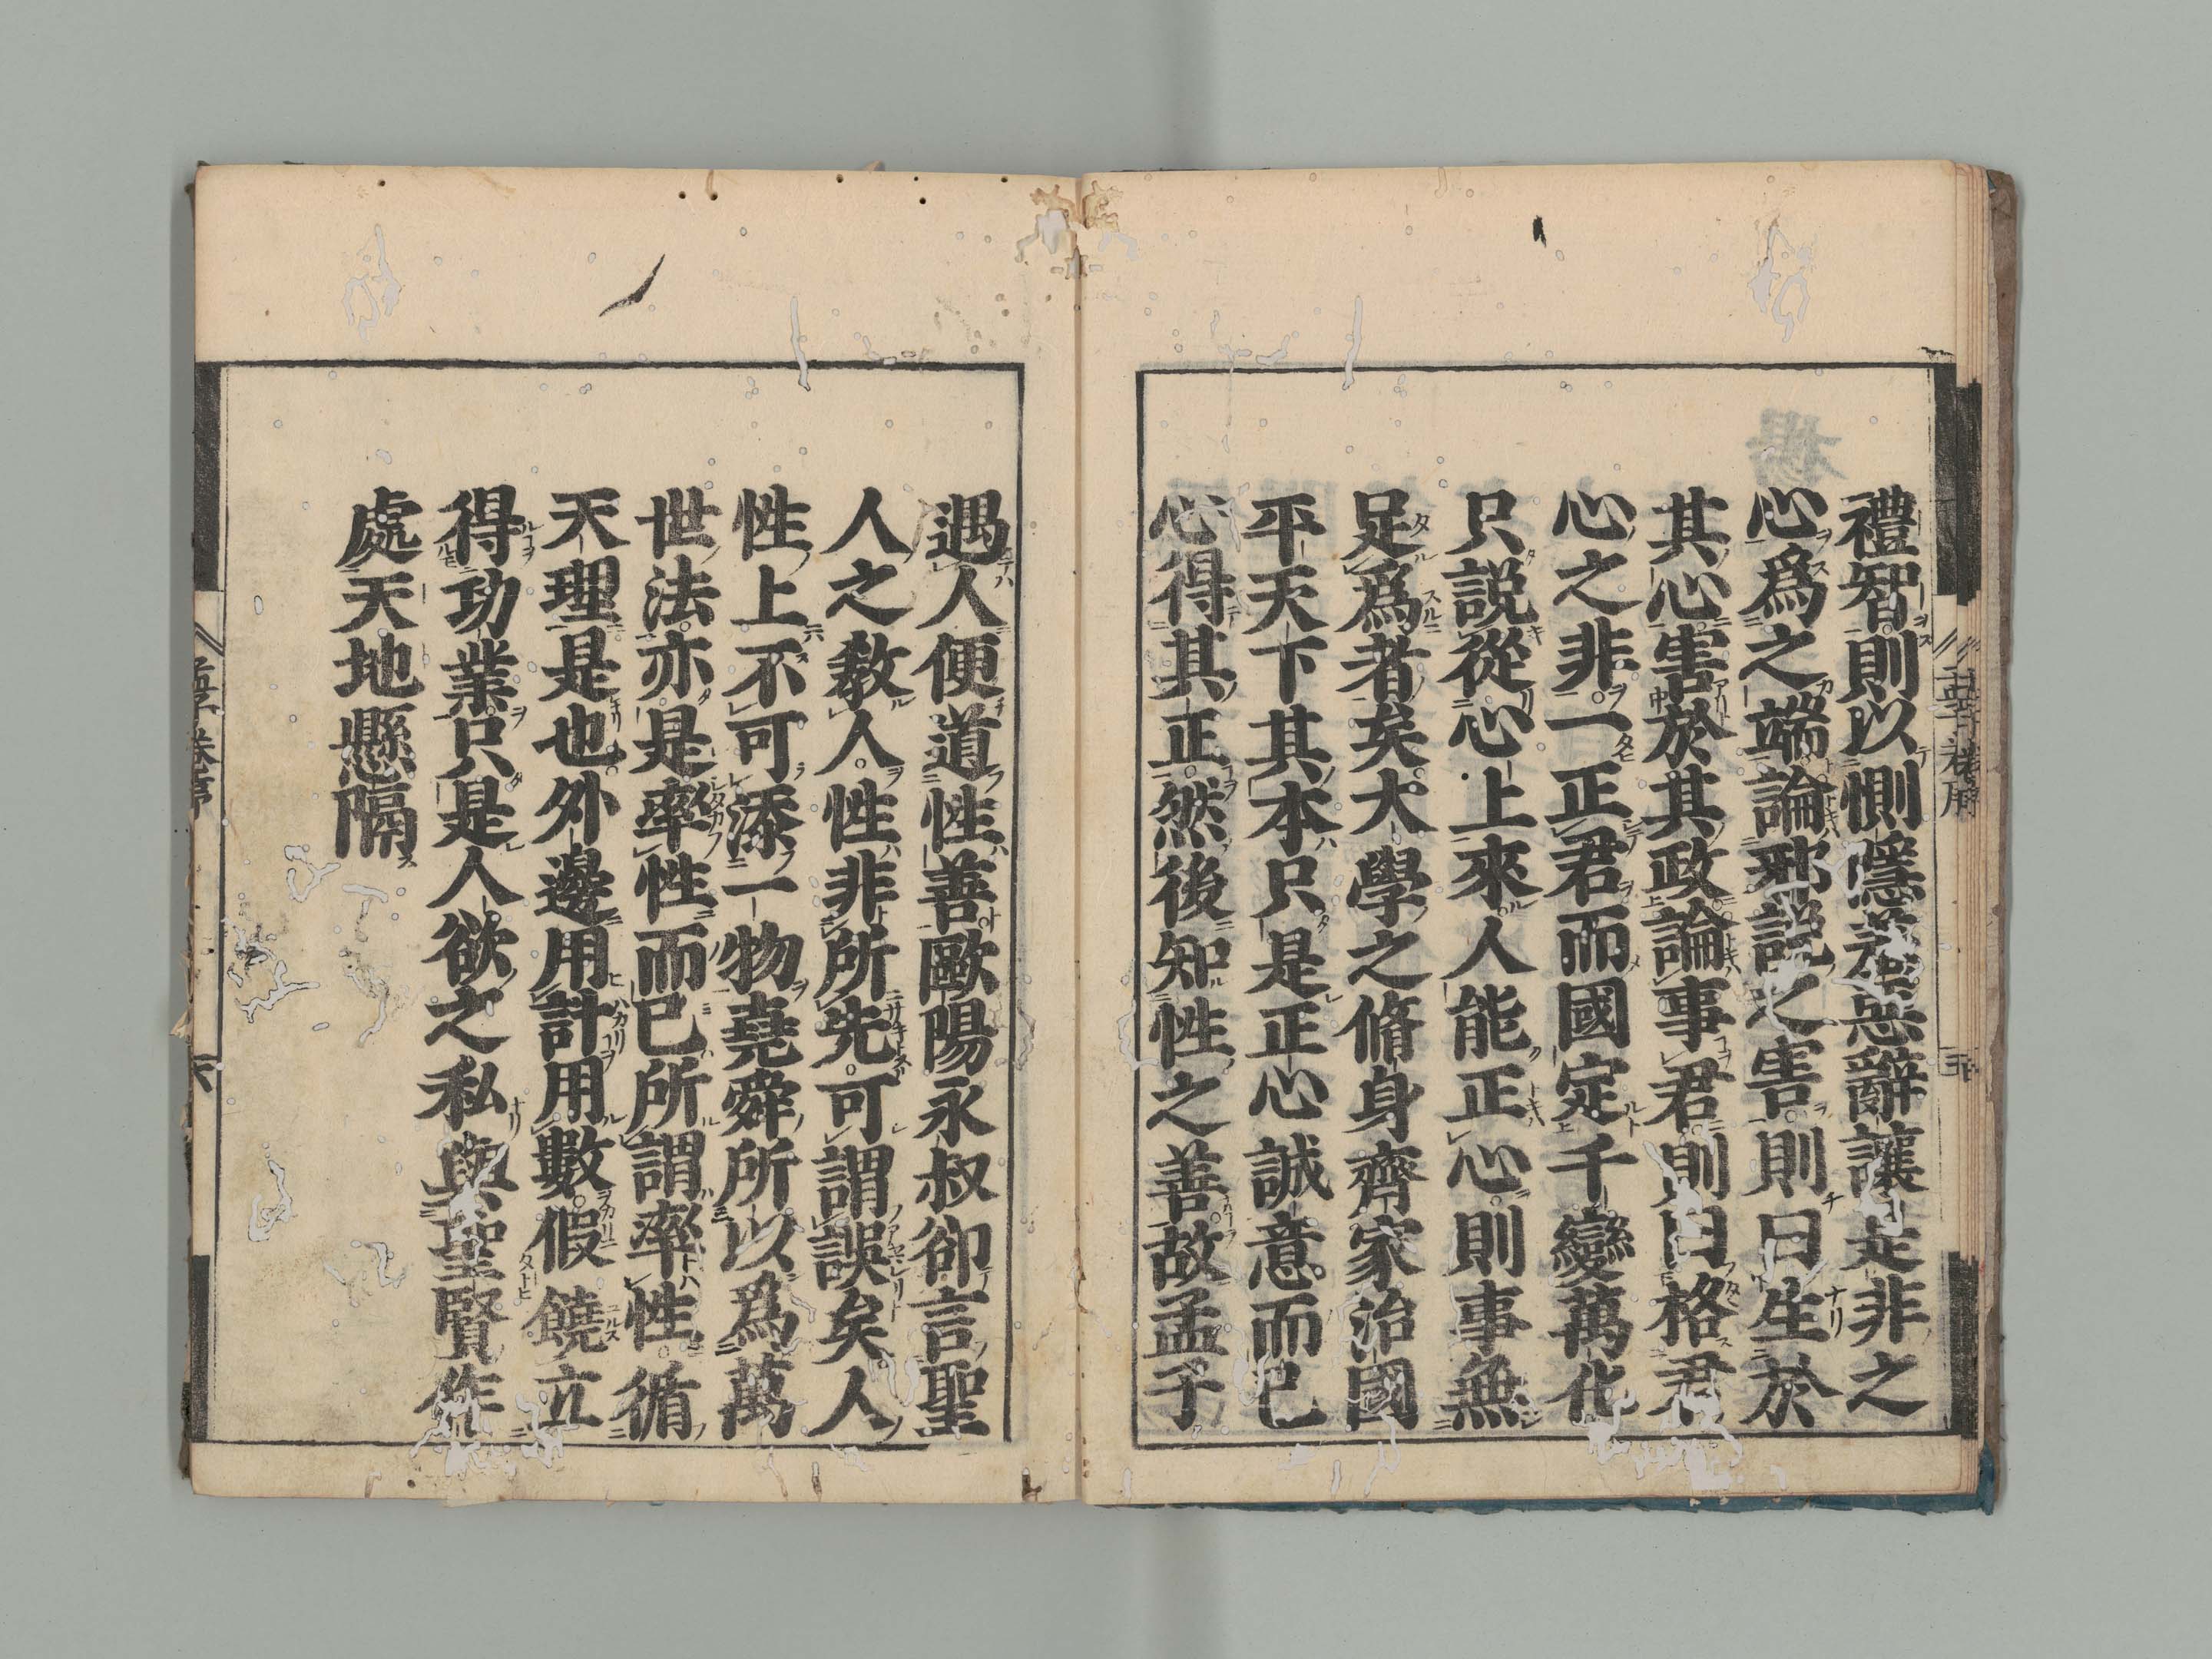 禮智則以惻隱羞惡辭讓是非之
心爲之端論邪説之害則曰生於
其心害於其政論事君則曰格君
心之非一正君而國定千變萬化
只説從心上來人能正心則事無
足爲者矣大學之脩身齊家治國
平天下其本只是正心誠意而已
心得其正然後知性之善故孟子
遇人便道性善歐陽永叔卻言聖
人之敎人性非所先可謂誤矣人
性上不可添一物堯舜所以爲萬
世法亦是率性而已所謂率性循
天理是也外邊用計用數假饒立
得功業只是人欲之私與聖賢作
處天地懸隔
孟子卷序
六